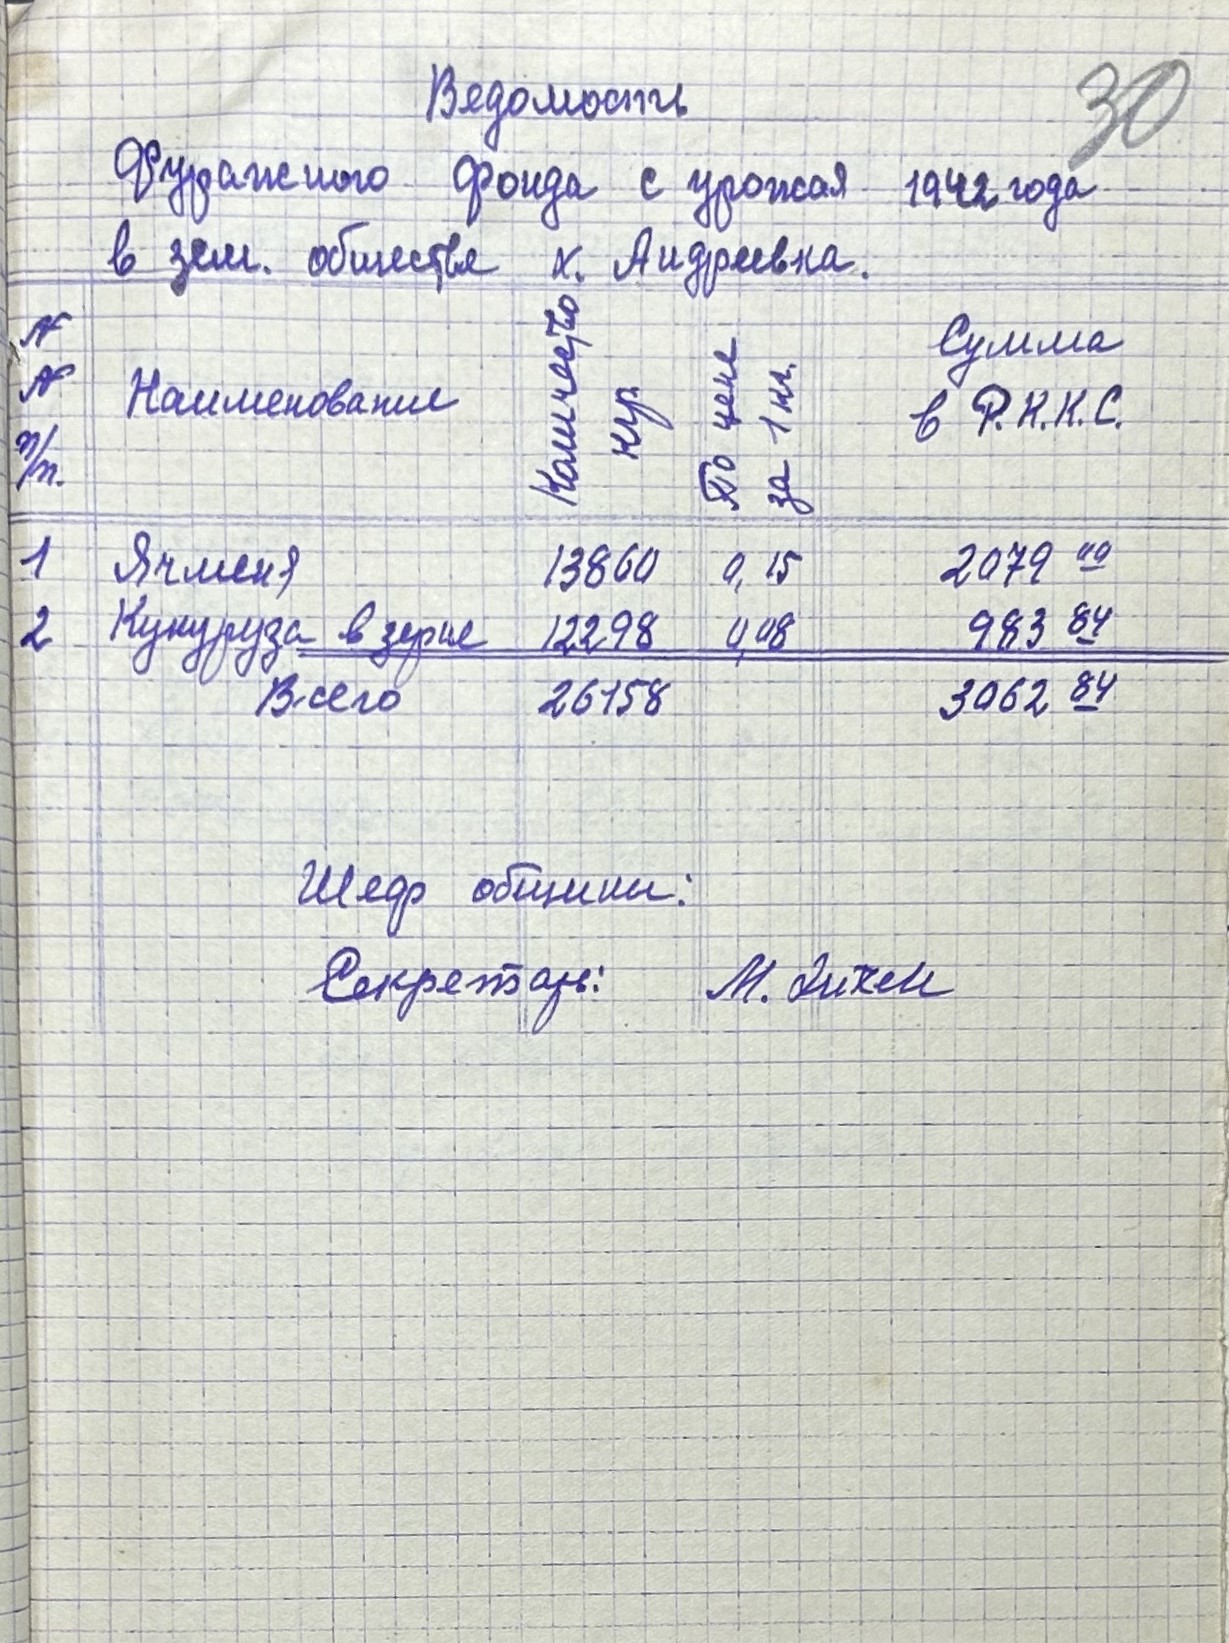 30
Ведомость
Фуражного фонда с урожая 1942 года
в зем. обществе х. Андреевка.
№ № п/п. Наименование Количество кгр. По цене за 1 кг. Сумма в Р.К.К.С.
1 Ячменя 13860 0,15 2079 00
2 Кукуруза в зерне 12298 0,08 983 84
Всего 26158 3062 84
Шеф общины:
Секретарь: М.